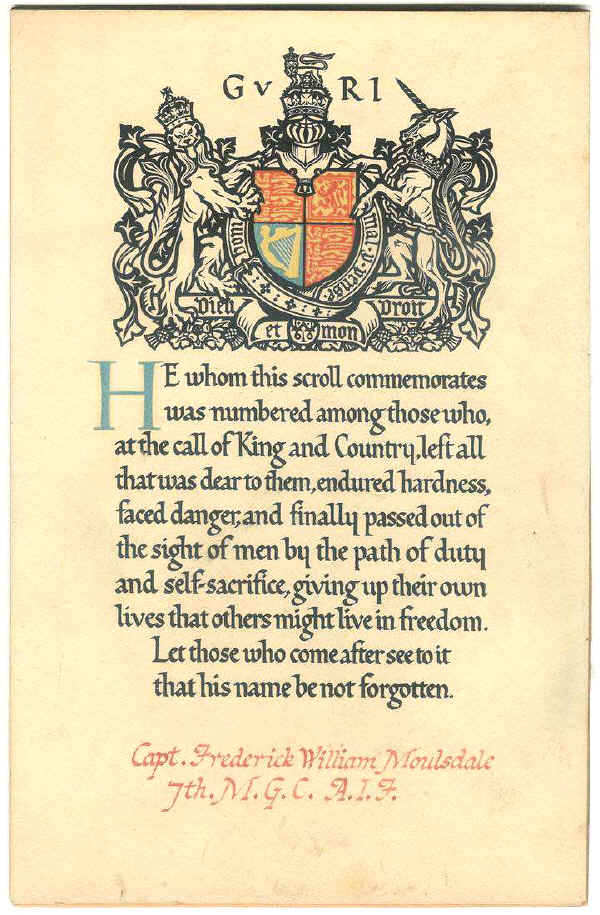 G V R I
honi
mal·y·pense
Dieu et mon Droit
HE whom this scroll commemorates
was numbered among those who,
at the call of King and Country, left all
that was dear to them, endured hardness,
faced danger, and finally passed out of
the sight of men by the path of duty
and self-sacrifice, giving up their own
lives that others might live in freedom.
Let those who come after see to it
that his name be not forgotten.
Capt. Frederick William Moulsdale
7th. M.G.C. A.I.F.